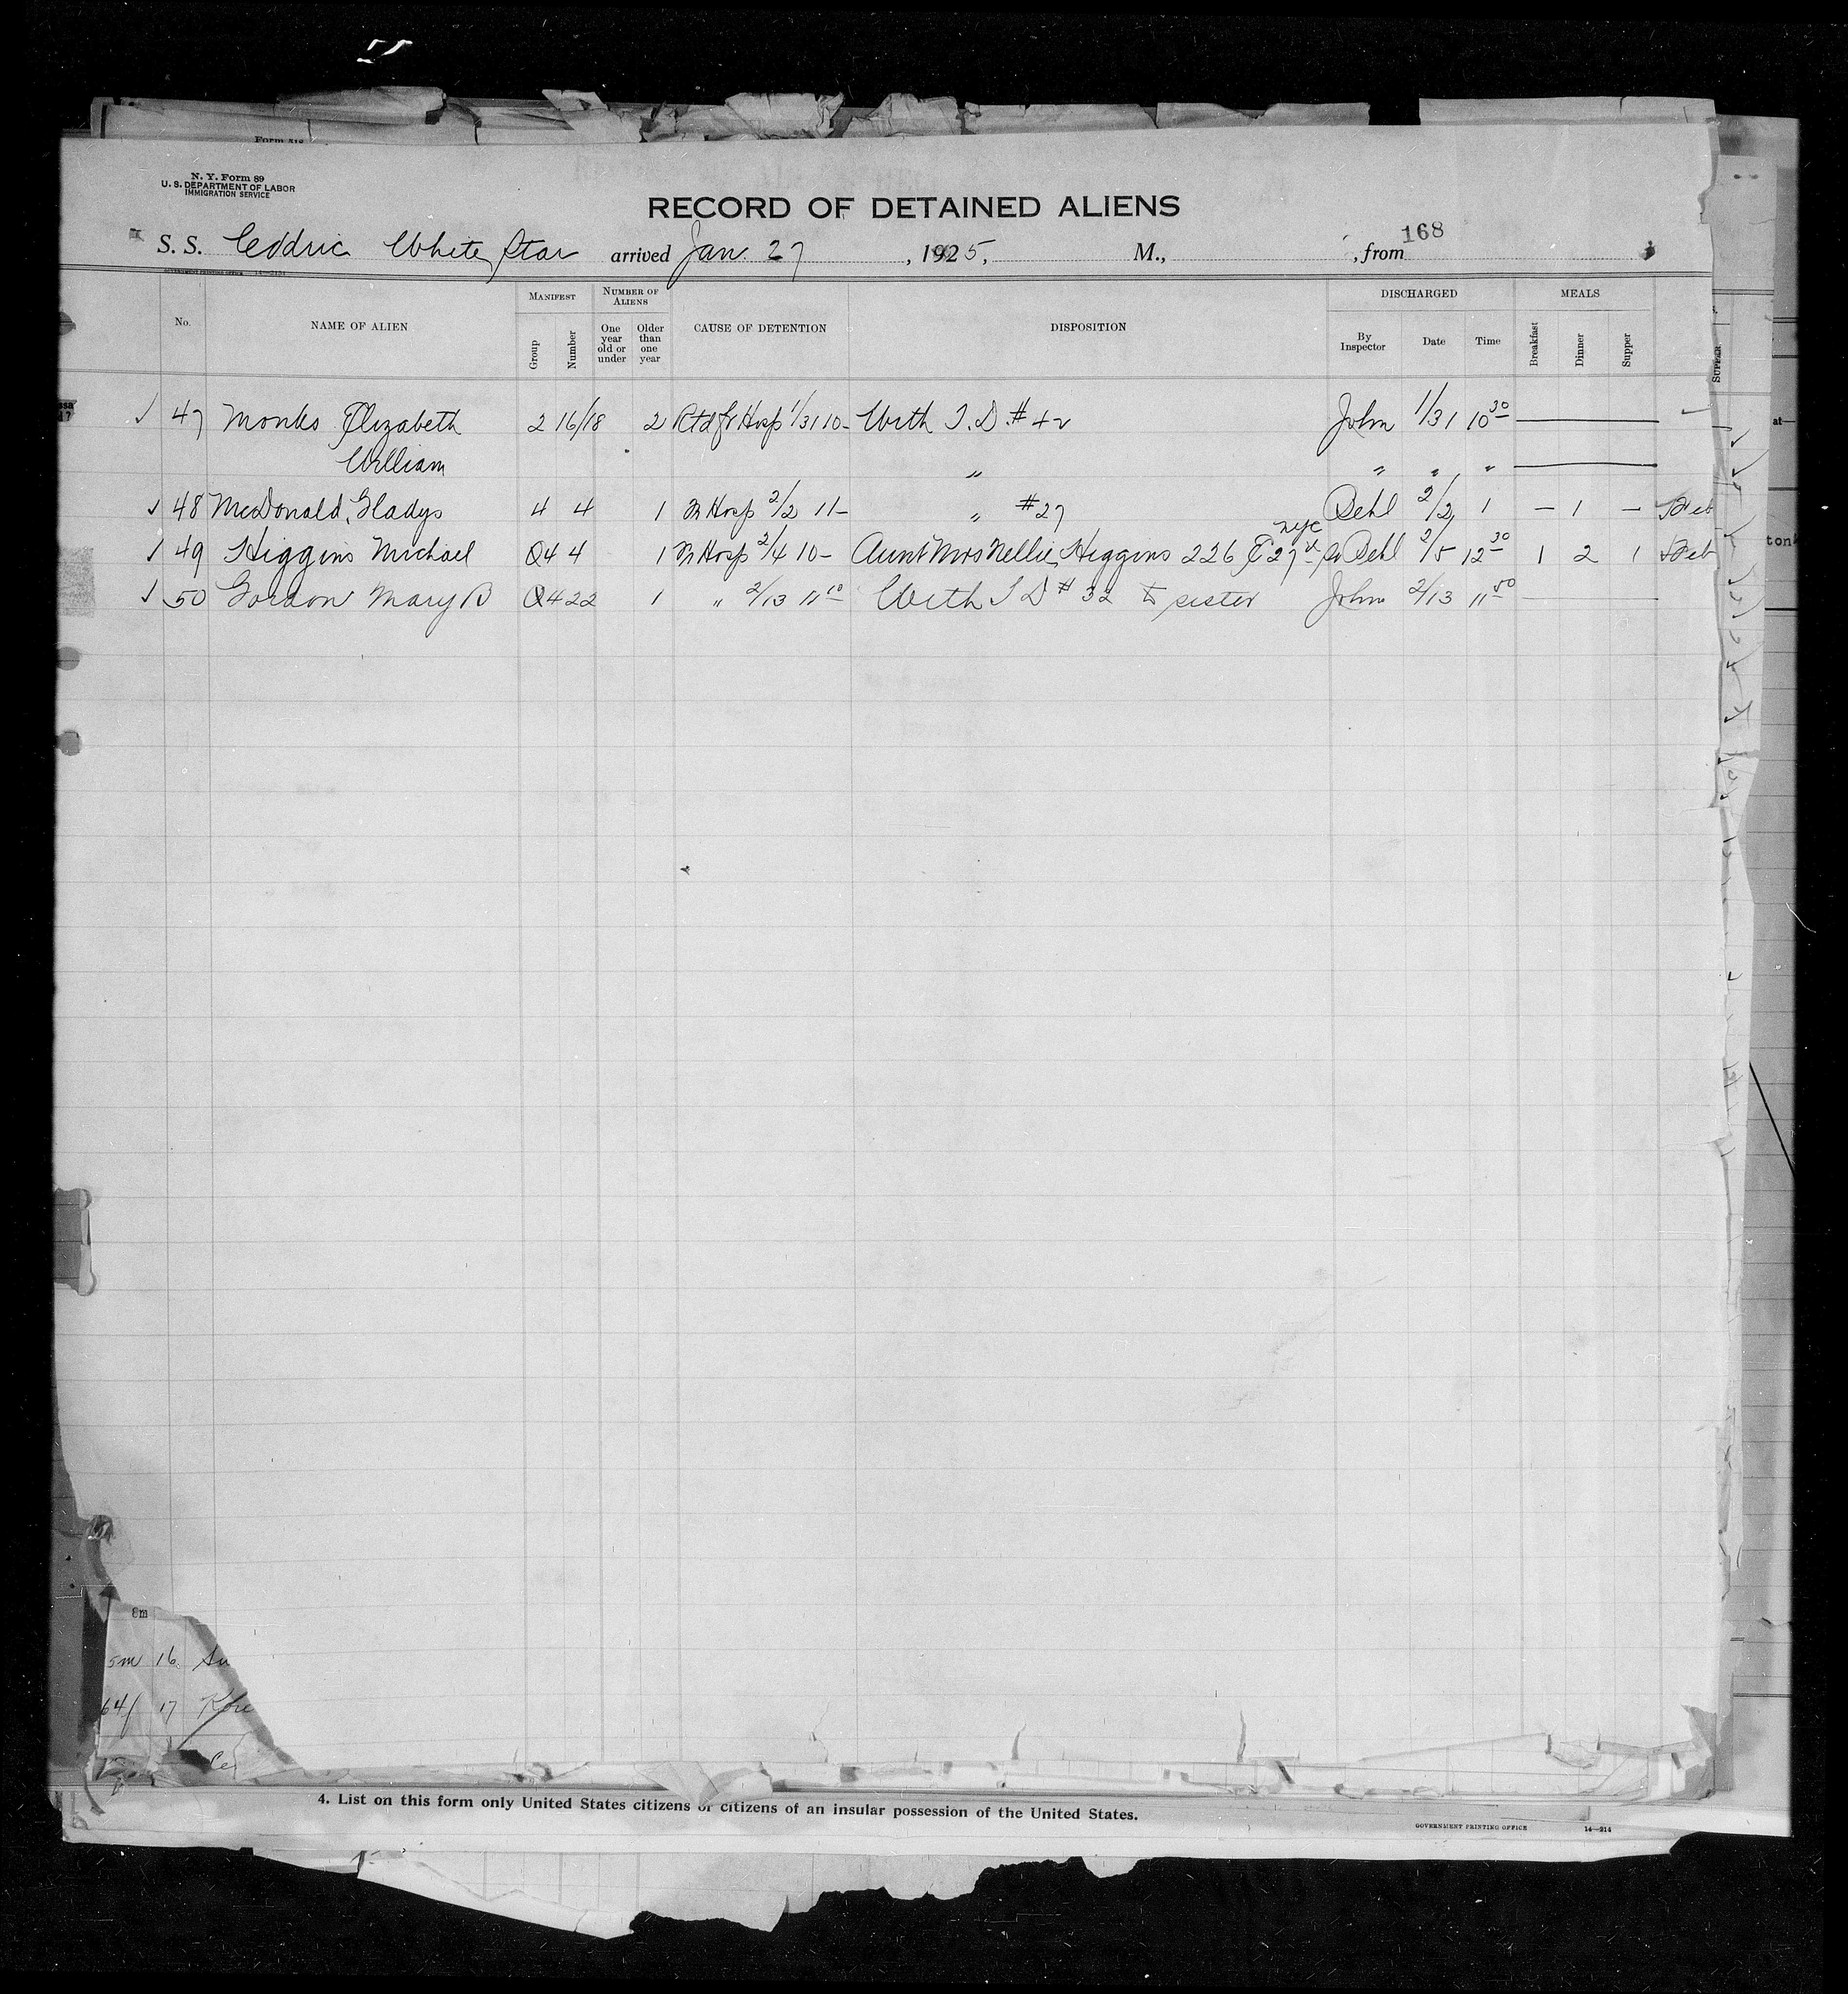 Form 518
N. Y. Form 89
U. S. DEPARTMENT OF LABOR
IMMIGRATION SERVICE
RECORD OF DETAINED ALIENS
168
S. S. Ceddric White Star arrived Jan. 27, 1925, M., , from
GOVERNMENT PRINTING OFFICE
No. NAME OF ALIEN MANIFEST NUMBER OF ALIENS CAUSE OF DETENTION DISPOSITION DISCHARGED MEALS
Group Number One year old or under Older than one year By Inspector Date Time Breakfast Dinner Supper
✓ 47 Monks Elizabeth 2 16/18 2 Rtd fr Hosp 1/31 10- With I. D. #42 John 1/31 10 30
William " " " "
✓ 48 McDonald, Gladys 4 4 1 Fr Hosp 2/2 11- " #27 Dehl 2/2 1 — 1 —
NYC
✓ 49 Higgins Michael Q4 4 1 Fr Hosp 2/4 10- Aunt Mrs Nellie Higgins 226 E 27 st Dehl 2/5 12 30 1 2 1
✓ 50 Gordon Mary B Q4 22 1 " 2/13 11 10 With I D # 32 to sister John 2/13 11 50
SUPPER
at—
8m
5m 16 Su
64f 17
4. List on this form only United States citizens or citizens of an insular possession of the United States.
GOVERNMENT PRINTING OFFICE 14—214